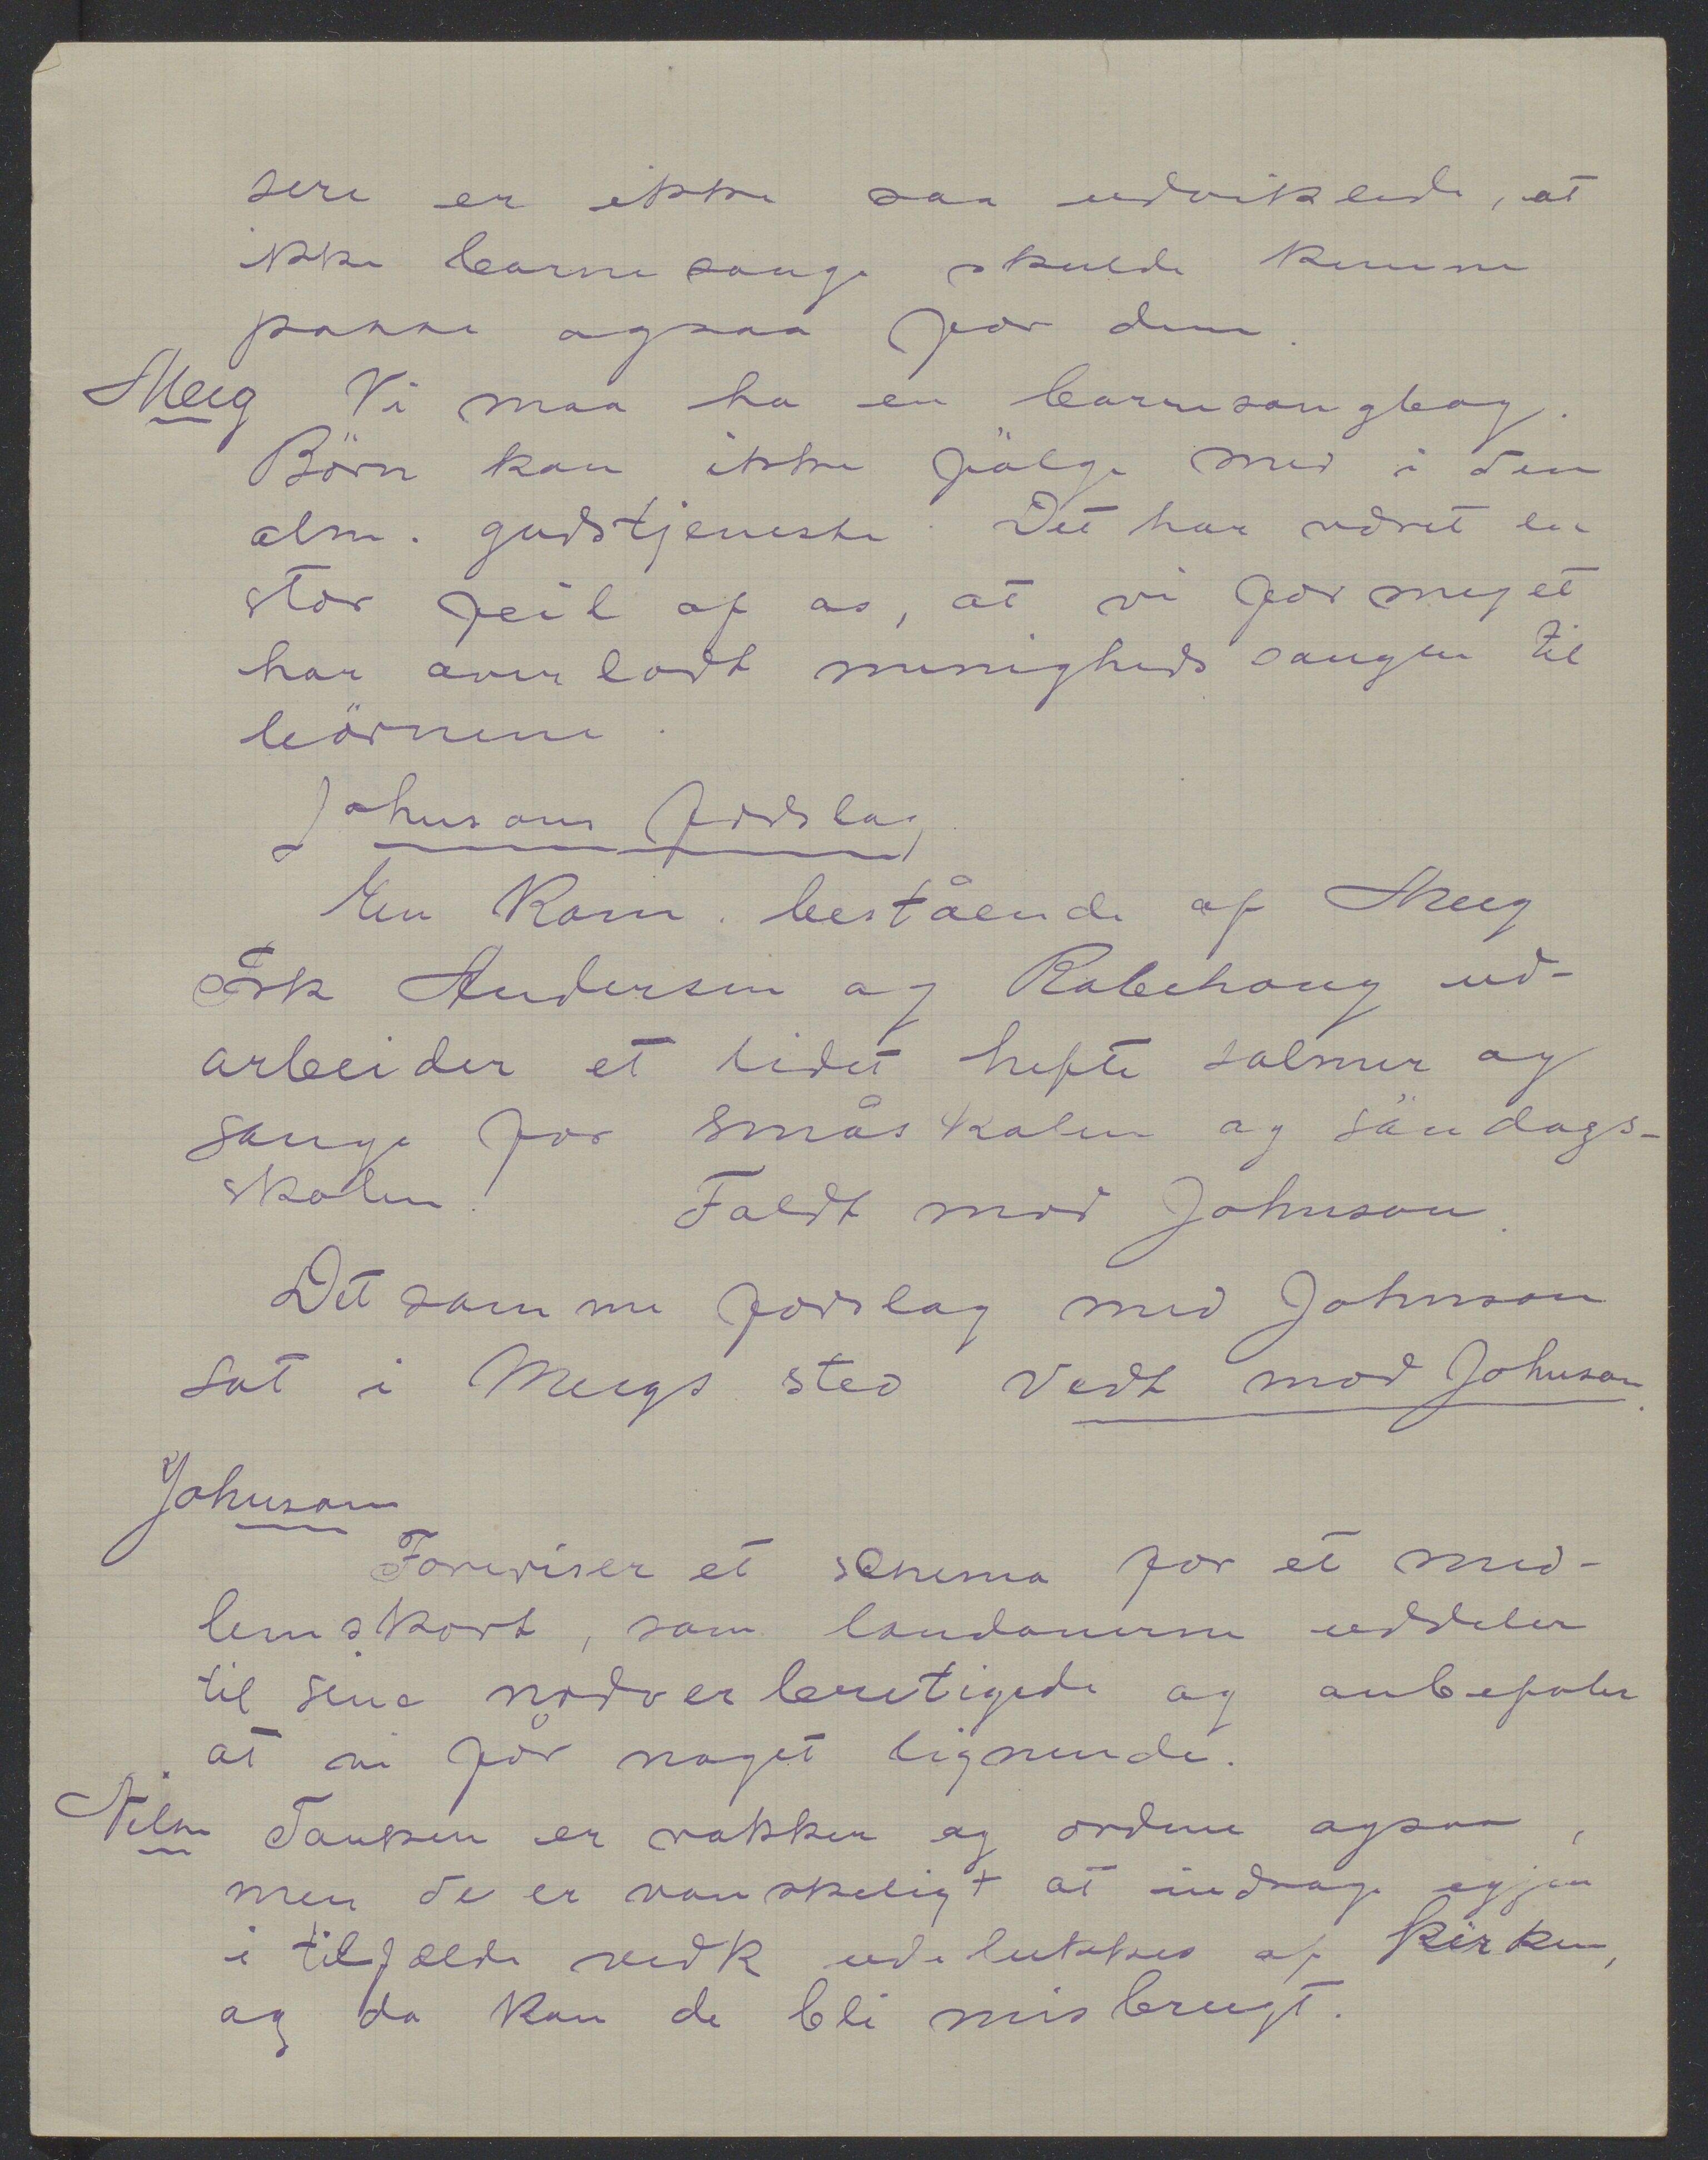 sere er ikke saa udviklede, at
ikke barnesange skulde kunne
passe ogsaa for dem.
Meeg Vi maa ha en barnesangbog.
Börn kan ikke fölge med i den
alm. gudstjeneste. Det har været en
stor feil af os, at vi for meget
har overladt menighedssangen til
börnene.
Johnsons forslag
En Kom. bestående af Meeg
Frk Andersen og Rabehaug ud-
arbeider et lidet hefte salmer og
sange for småskolen og söndags-
skolen. Faldt mod Johnson.
Det samme forslag med Johnson
sat i Meegs sted Vedt mod Johnson.
Johnson
Foreviser et schema for et med-
lemskort, som londonerne uddeler
til sine nadverberetigede og anbefaler
at vi får noget lignende.
Nilsn Tanken er vakker og ordene ogsaa,
men de er vanskeligt at inddrage igjen
i tilfælde vedk udelukkes af kirken,
og da kan de bli misbrugt.